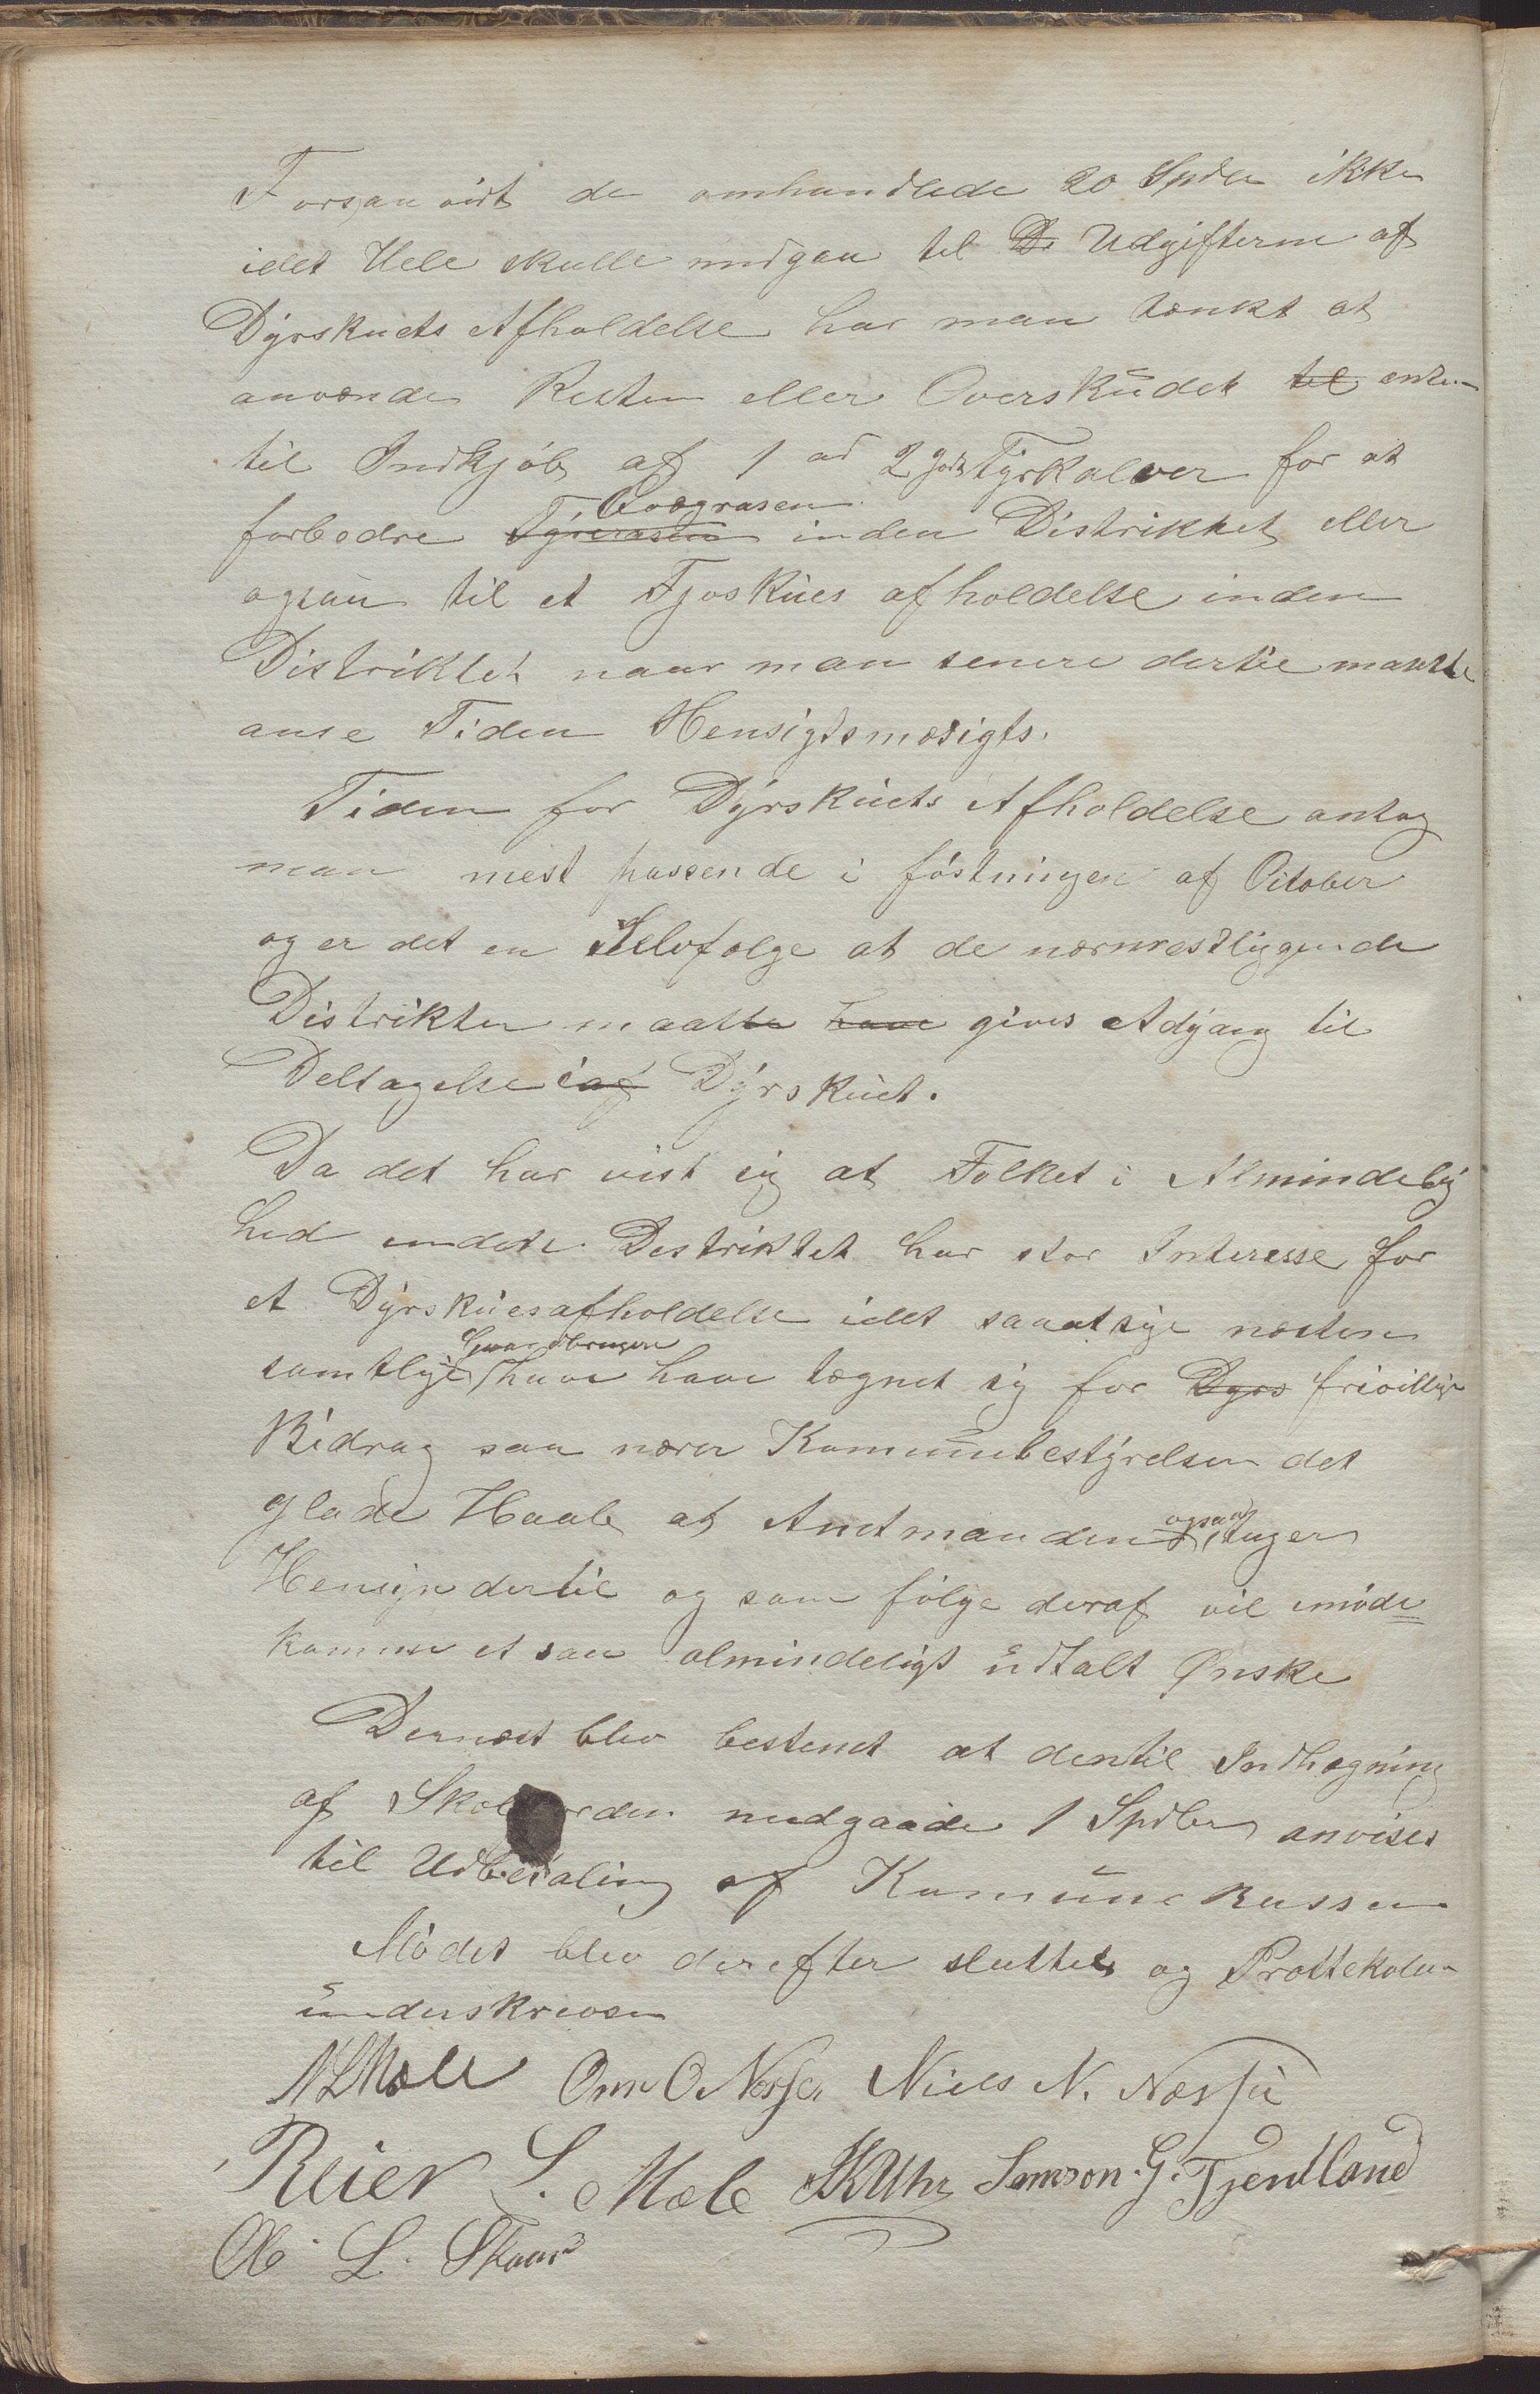 Forsaavidt de omhandlede 20 Spdlr ikke
idet Hele skulle medgaa til De Udgifterne af
Dyrskuets Afholdelse har man tænkt at
anvænde Resten eller Overskudet til enten
til Indkjøb af 1 ad 2 gode Tyrkalver for at
forbedre Tyrerasen Qvægrasen inden Distriktet eller
ogsaa til et Fjøskues afholdelse inden
Distriktet naar man senere dertil maatte
anse Tiden Hensigtsmæsigts.
Tiden for Dyrskuets Afholdelse antog
man mest passende i føstningen af October
og er det en Selvfølge at de nærmestliggende
Distrikter maatte have gives Adgang til
Deltagelse i af Dyrskuet.
Da det har vist sig at Folket i Almindelig
hed indete Destriktet har stor Interesse for
et Dyrskuesafholdelse idet saaatsige næsten
samtlige Gaardbrugere have have tægnet sig for Dyrs frivillige
Bidrag saa nærer Kommunebestyrelsen det
glade Haab at Amtmanden ogsaa tager
Hensyn dertil og som følge deraf vil imøde
komme et saa almindeligt udtalt Ønske
Dernæst blev bestemt at dentil Indhægning
af medgaaede 1 Spdlr anvises
til Udbetaling af Kommunekassen
Mødet blev derefter sluttet og Prottekolen
underskreven
N L Mæle Omn O. Nesse. Niels N. Næssu
Reier L. Mæle Samson. G. Tjentland
Ob. L. Skaar